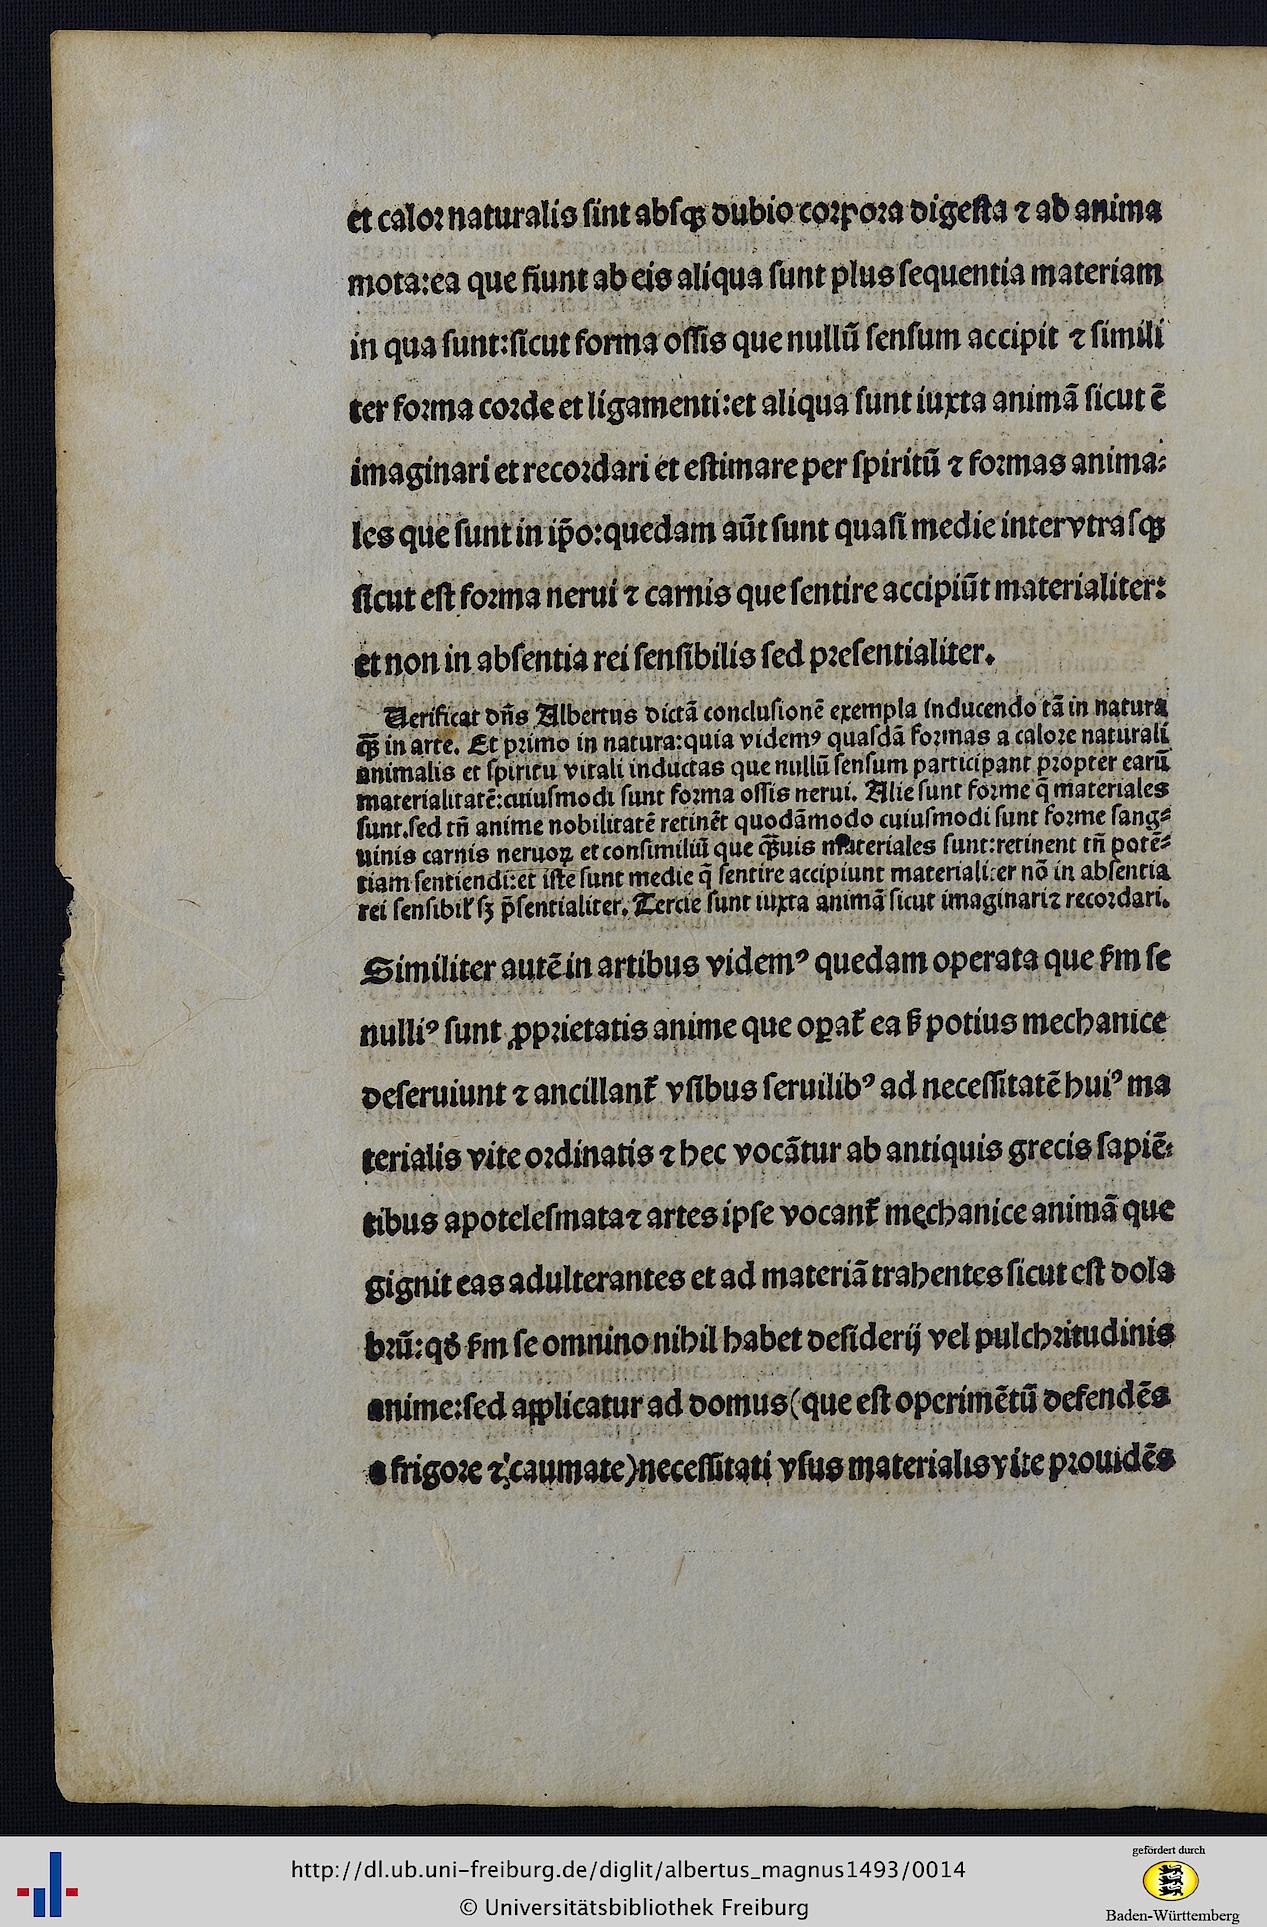 et calor naturalis ſint abſqꝫ dubio corpora digeſta ⁊ ab anima
mota:ea que fiunt ab eis aliqua ſunt plus ſequentia materiam
in qua ſunt:ſicut forma oſſis que nullū ſenſum accipit ⁊ ſimili
ter forma corde et ligamenti:et aliqua ſunt iuxta animā ſicut ē
imaginari et recordari et eſtimare per ſpiritū ⁊ formas anima⸗
les que ſunt in ip̄o:quedam aūt ſunt quaſi medie inter vtraſqꝫ
ſicut eſt forma nerui ⁊ carnis que ſentire accipiūt materialiter:
et non in abſentia rei ſenſibilis ſed preſentialiter.
Uerificat dn̄s Albertus dictā concluſionē exempla inducendo tā in natura
qꝫ̄ in arte. Et primo in natura:quia videmꝰ quaſdā formas a calore naturali
animalis et ſpiritu vitali inductas que nullū ſenſum participant propter earū
materialitatē:cuiuſmodi ſunt forma oſſis nerui. Alie ſunt forme q̄ materiales
ſunt.ſed tn̄ anime nobilitatē retinēt quodāmodo cuiuſmodi ſunt forme ſang⸗
uinis carnis neruoꝝ et conſimiliū que qꝫ̄uis materiales ſunt:retinent tn̄ potē⸗
tiam ſentiendi:et iſte ſunt medie q̄ ſentire accipiunt materialiter nō in abſentia
rei ſenſibilꝭ ſꝫ p̄ſentialiter. Tercie ſunt iuxta animā ſicut imaginari⁊ recordari.
Similiter autē in artibus videmꝰ quedam operata que ẜm ſe
nulliꝰ ſunt ꝓprietatis anime que oꝑat̄ ea ẜ potius mechanice
deſeruiunt ⁊ ancillant̄ vſibus ſeruilibꝰ ad neceſſitatē huiꝰ ma
terialis vite ordinatis ⁊ hec vocātur ab antiquis grecis ſapiē⸗
tibus apoteleſmata⁊ artes ipſe vocant̄ mechanice animā que
gignit eas adulterantes et ad materiā trahentes ſicut eſt dola
brū:qđ ẜm ſe omnino nihil habet deſiderij vel pulchritudinis
anime:ſed applicatur ad domus(que eſt operimētū defendēs
a frigore ⁊ caumate)neceſſitati vſus materialis vite prouidēs
http://dl.ub.uni-freiburg.de/diglit/albertus_magnus1493/0014
© Universitätsbibliothek Freiburg
gefördert durch
Baden-Württemberg